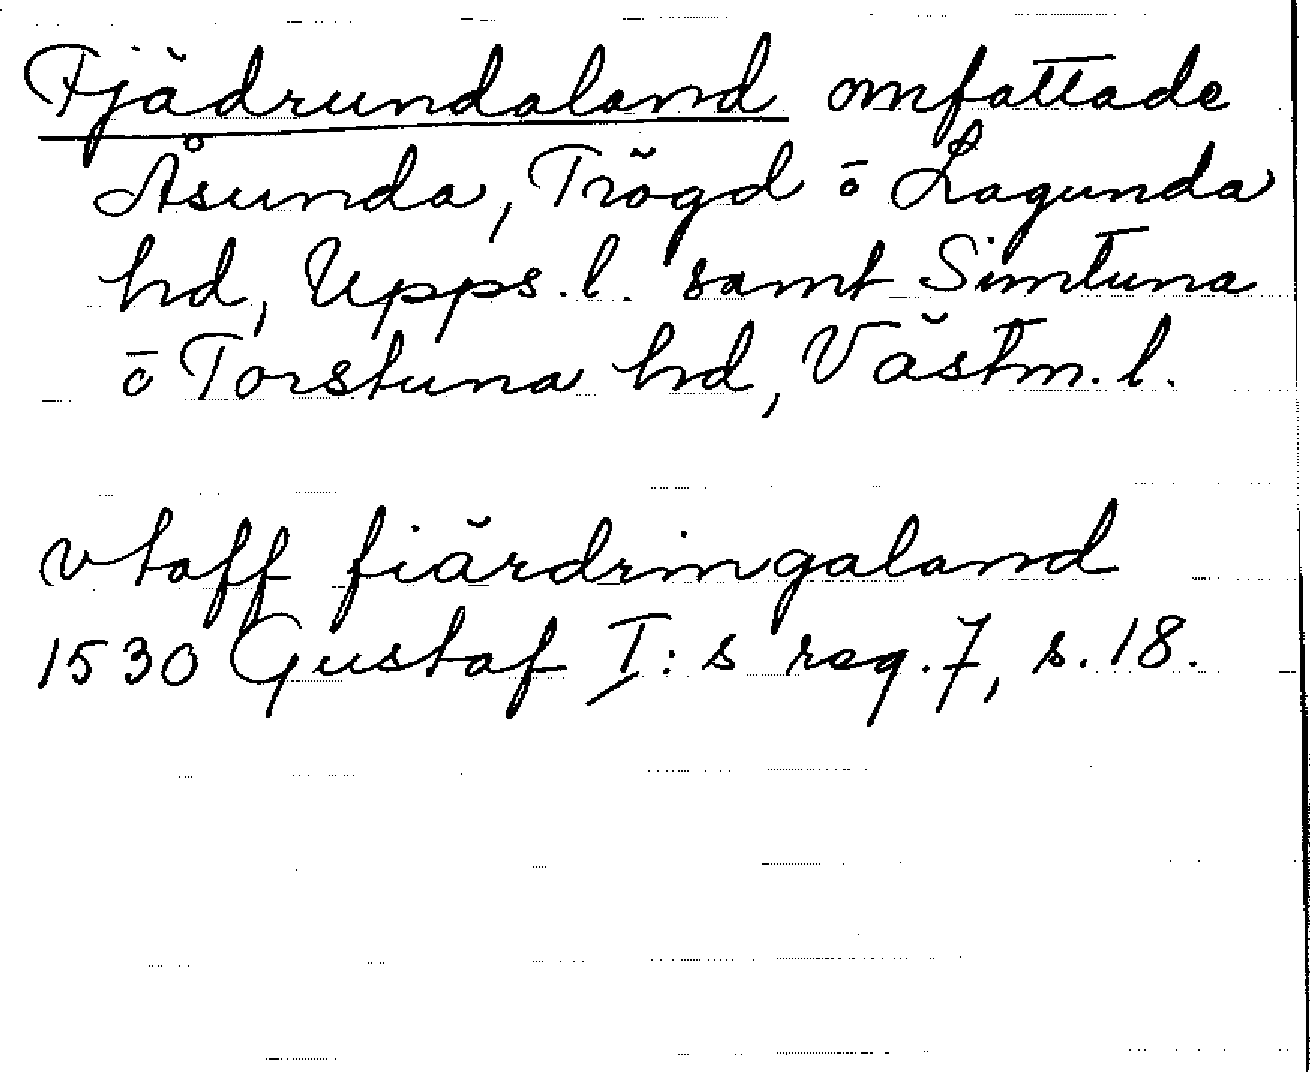 Fjädrundaland omfattade
Åsunda, Trögd ō Lagunda
hd, Upps.l. samt Simtuna
ō Torstuna hd, Västm.l.
vtaff fiärdringaland
1530 Gustaf I:s reg.7, s.18.